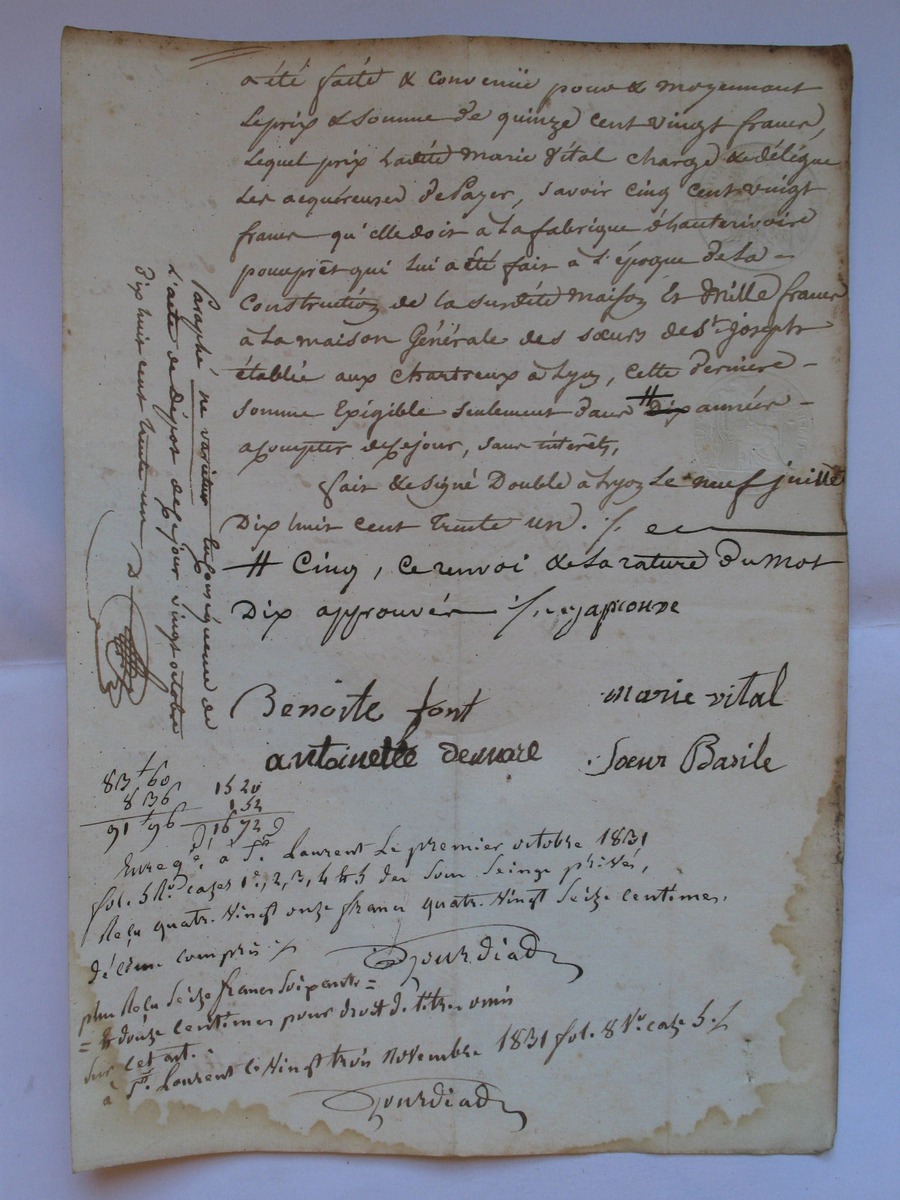 a été faite & convenüe pour & moyennant
le prix & somme de quinze cent vingt francs,
lequel prix ladite marie Vital charge & délégue
les acquéreuses de Payer, Savoir cinq cent vingt
francs qu'elle doit à La fabrique d'hauterivoire
pour prêt qui lui a été fait à l'époque de La -
Construction de la surdite maison Et Mille francs
à La maison Générale des sœurs de St. joseph
établie aux Chartreux à Lyon, cette derniere -
somme Exigible seulement dans # dix années -
a compter de ce jour, sans intérêts,
fait & signé Double à Lyon Le neuf juillet
Dix huit cent trente un ./.
# Cinq, ce renvoi & la rature du mot
Dix approuvés ./. japrouve
Benoite font
marie vital
antoinette
Sœur Basile
Paraphé ne varietur en conséquence de
L'acte de dépôt de ce jour vingt octobre
dix huit cent trente un
83 f 60
8 36
91 f 96
1520
152
1672
Enregé. à St. Laurent Le premier octobre 1831
fol. 5 Ro. cazes 1e, 2, 3, 4 & 5 des Sous Seings privés,
Reçu quatre Vingt onze francs quatre Vingt Seize centimes,
décime compris ./.
Gourdiad
plus Reçu Seize francs Soixante =
= & douze centimes pour droit de titre omis
sur cet art. .
à St. Laurent le Vingt trois novembre 1831 fol. 8 Vo. caze 5 ./.
Gourdiad